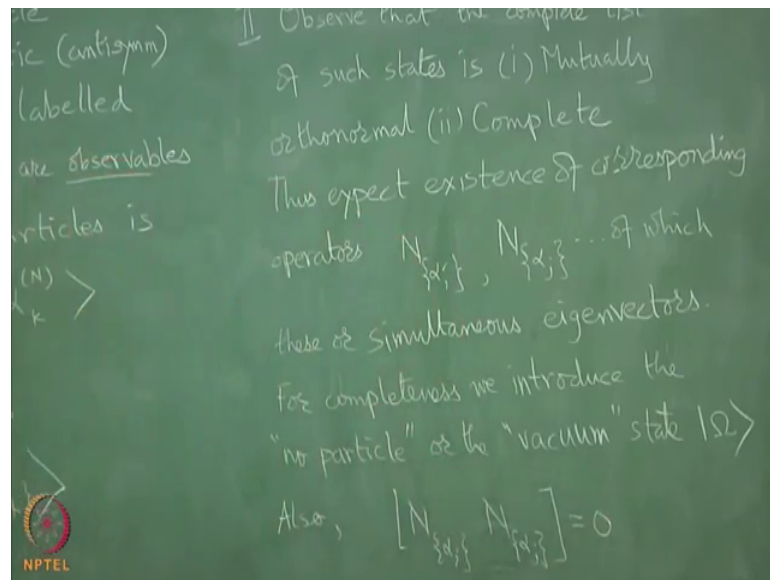 ic (antisymm)
labelled
are observables
rticles is
(N)
k >
II Observe that the complete list
of such states is (i) Mutually
orthonormal (ii) Complete
Thus expect existence of corresponding
operators N_{α'_i}, N_{α_j} ... of which
these or simultaneous eigenvectors.
For completeness we introduce the
"no particle" or the "vacuum" state |Ω>
Also, [N_{α_i} N_{α_j}] = 0
NPTEL